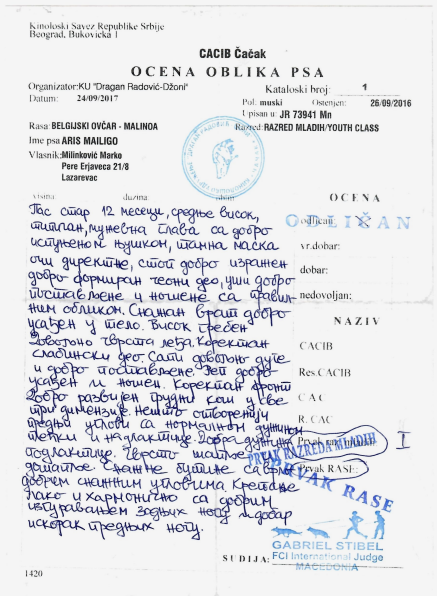 Kinološki Savez Republike Srbije
Beograd, Bukovička 1
CACIB Čačak
OCENA OBLIKA PSA
Organizator: KU "Dragan Radović-Džoni"
Kataloski broj: 1
Datum: 24/09/2017
Pol: muski Ostenjen: 26/09/2016
Upisan u: JR 73941 Mn
Rasa: BELGIJSKI OVČAR - MALINOA
Razred: RAZRED MLADIH/YOUTH CLASS
Ime psa ARIS MAILIGO
Vlasnik: Milinković Marko
Pere Erjaveca 21/8
Lazarevac
visina duzina obim
OCENA
Пас стар 12 месеци, средње висок,
типичан, мужевна глава са добро
испуњеном њушком, тамна маска
очи директне, стоп добро изражен
добро формиран чеони део, уши добро
постављене и ношене са правил-
ним обликом. Снажан врат добро
усађен у тело. Висок гребен
Довољно чврста леђа. Коректан
слабински део. Сапи довољно дуге
и добро постављене. Реп добро
усађен и ношен. Коректан фронт
Добро развијен грудни кош у све
три димензије. Нешто отворенији
предњи углови са нормалном дужином
и надлактице. Добра дужина
подлактице. Чврсто шапје и
бутине са врло
добрим снажним угловима Кретање
Лако и хармонично са добрим
потуривањем задњих ногу и добар
искорак предњих ногу.
odličan:
ODLIČAN
vr.dobar:
dobar:
nedovoljan:
NAZIV
CACIB
Res.CACIB
C A C
R. CAC
Prvak raz. mladih I
PRVAK RAZREDA MLADIH
Prvak RASE:
PRVAK RASE
GABRIEL STIBEL
FCI International Judge
MACEDONIA
SUDIJA:
1420